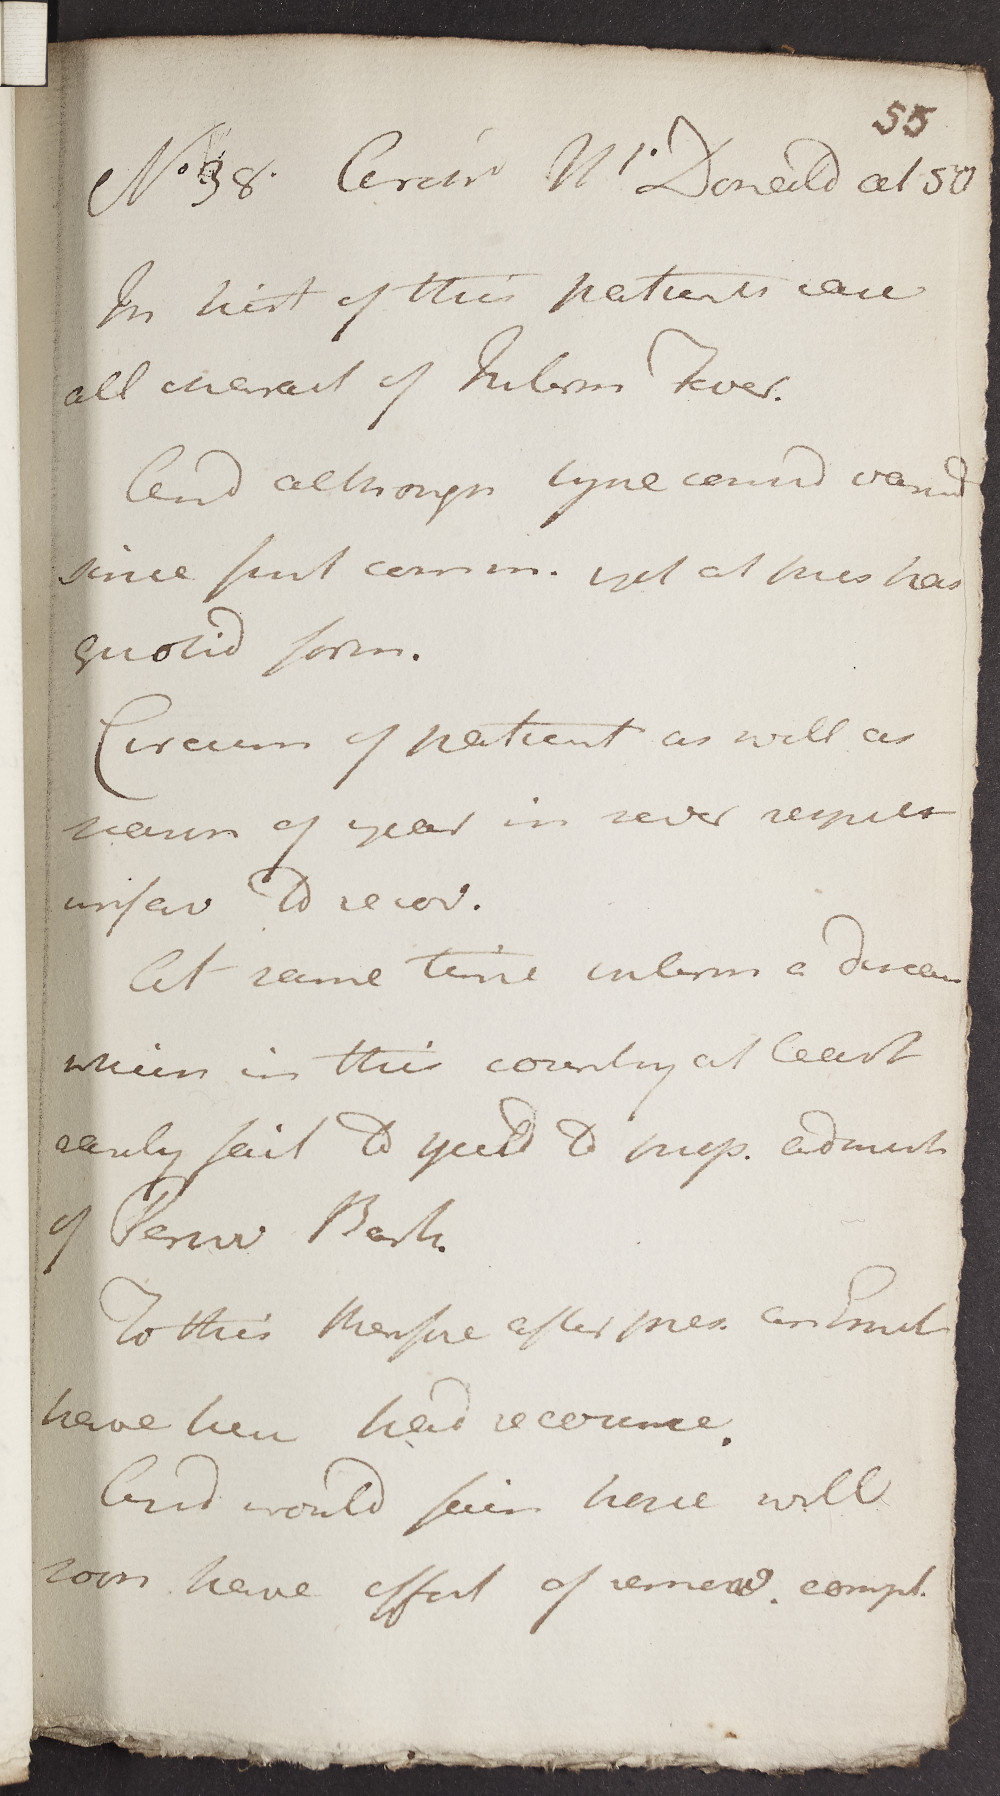 55
No 38. McDonald aet 50
In hist of this patients case
all charact of Interm Fever.
And although type cannd varied
since first comm. yet at pres has
quotid form.
Circum of patient as well as
season of year in sever respects
unfav to recov.
At same time interm a disease
which in this country at least
rarely fail to yield to prop. administ
of Peruv Bark.
To this therefore after pres. an Emet
have here had recourse.
And would fain hope will
soon have effect of remov. compl.